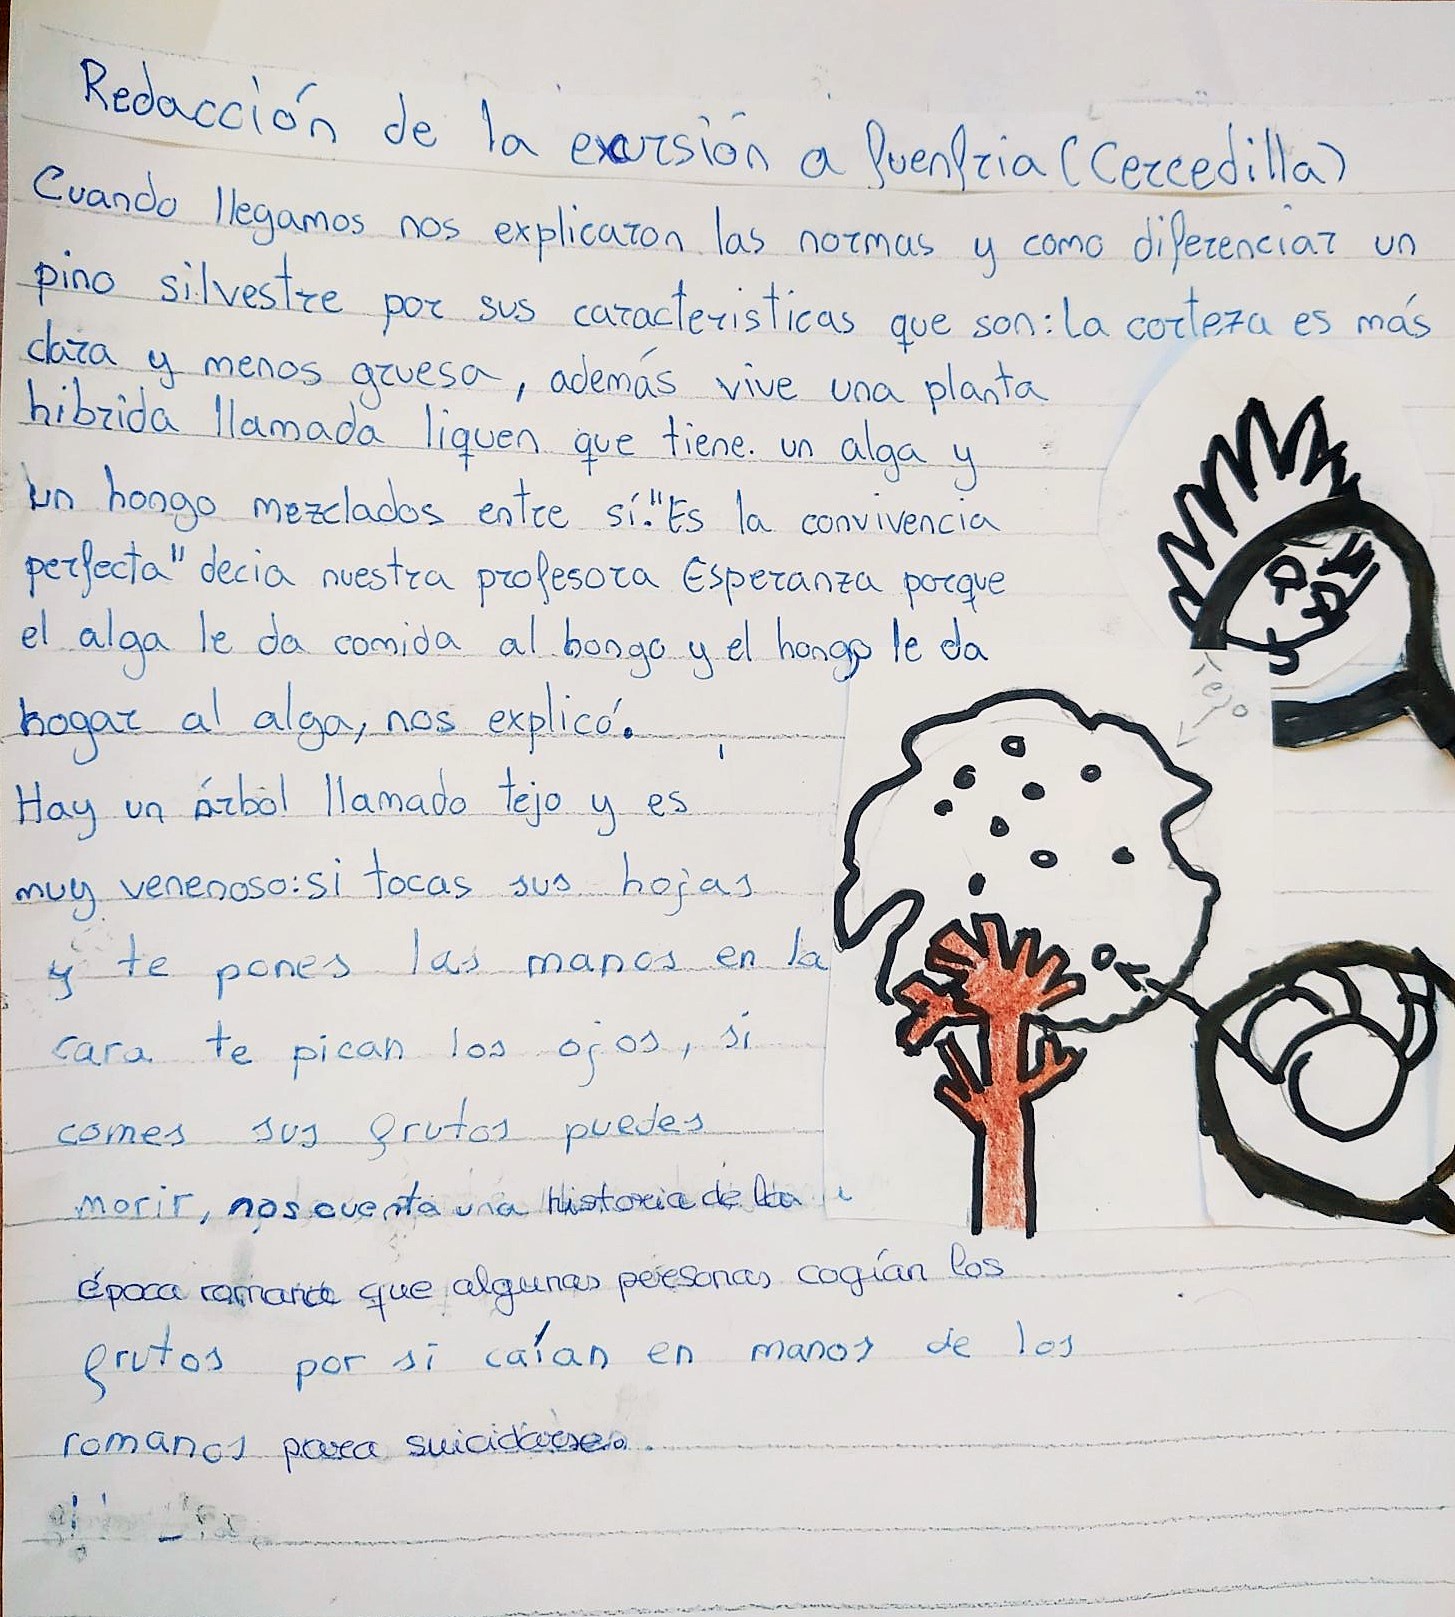 Redacción de la excursión a fuenfria (Cercedilla)
Cuando llegamos nos explicaron las normas y como diferenciar un
pino silvestre por sus caracteristicas que son: la corteza es más
clara y menos gruesa, además vive una planta
hibrida llamada liquen que tiene. un alga y
un hongo mezclados entre sí. "Es la convivencia
perfecta" decia nuestra profesora Esperanza porque
el alga le da comida al hongo y el hongo le da
hogar al alga, nos explicó.
Hay un árbol llamado tejo y es
muy venenoso: si tocas sus hojas
y te pones las manos en la
cara te pican los ojos, si
comes sus frutos puedes
morir, nos cuenta una historia de la
época romana que algunas personas cogían los
frutos por si caían en manos de los
romanos para suicidarse.
Tejo